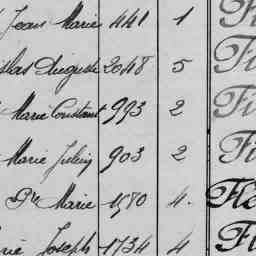 Jean Marie 441 1
slas Auguste 2048 5 Fi
Marie Constant 993 2 Fi
Marie Julien 903 2 Fi
Pre Marie 1580 4. Fle
rie Joseph 1734 4 Fl